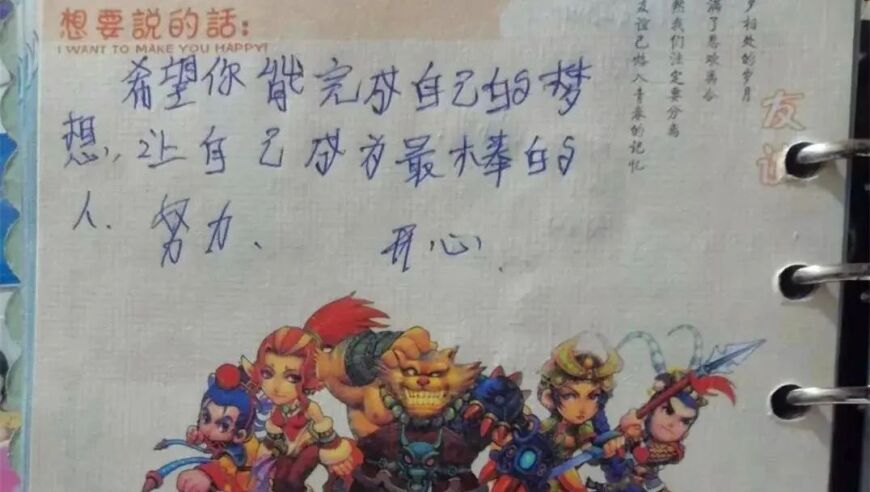 想要說的話:
I WANT TO MAKE YOU HAPPY!
希望你能完成自己的梦
想,让自己成为最棒的
人、努力、 开心.
岁相处的岁月
满了悲欢离合
然我们注定要分离
友谊已烙入青春的记忆
友谊